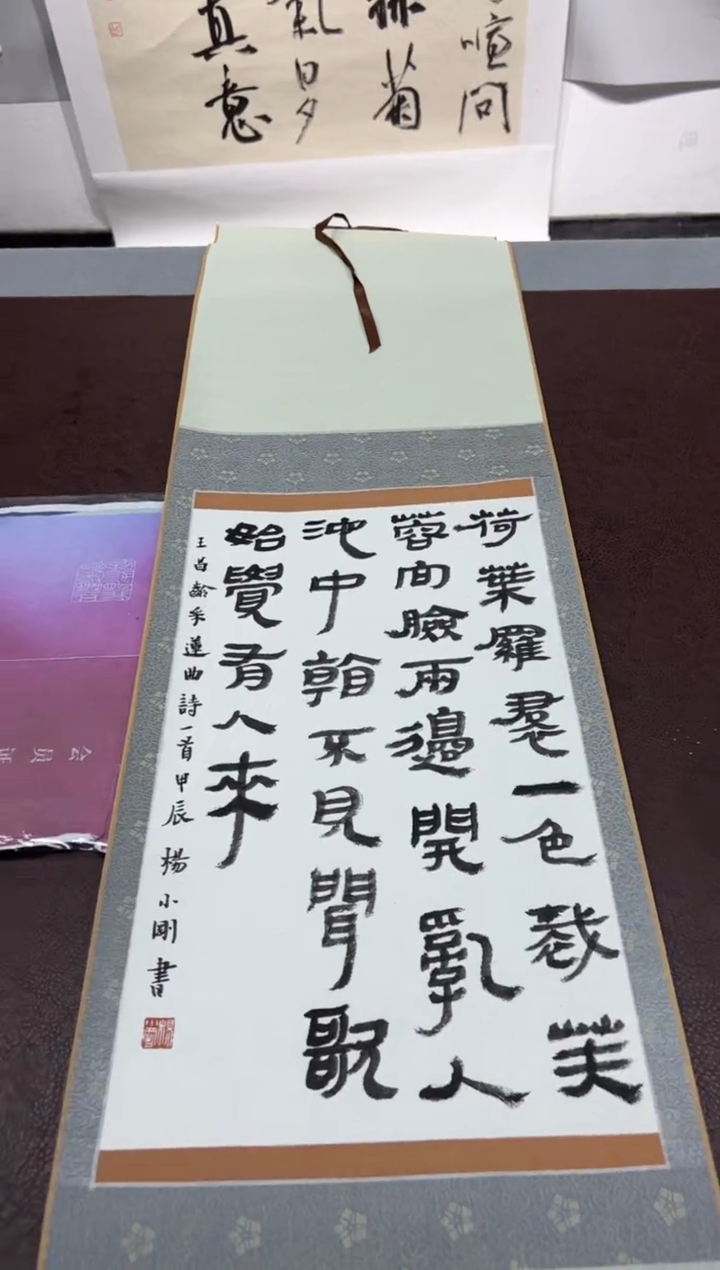 喧問
菊
氣日夕
真意
荷葉羅裙一色裁芙
蓉向臉兩邊開亂入
池中看不見聞歌
始覺有人來
王昌齡采蓮曲詩一首甲辰楊小剛書
会員